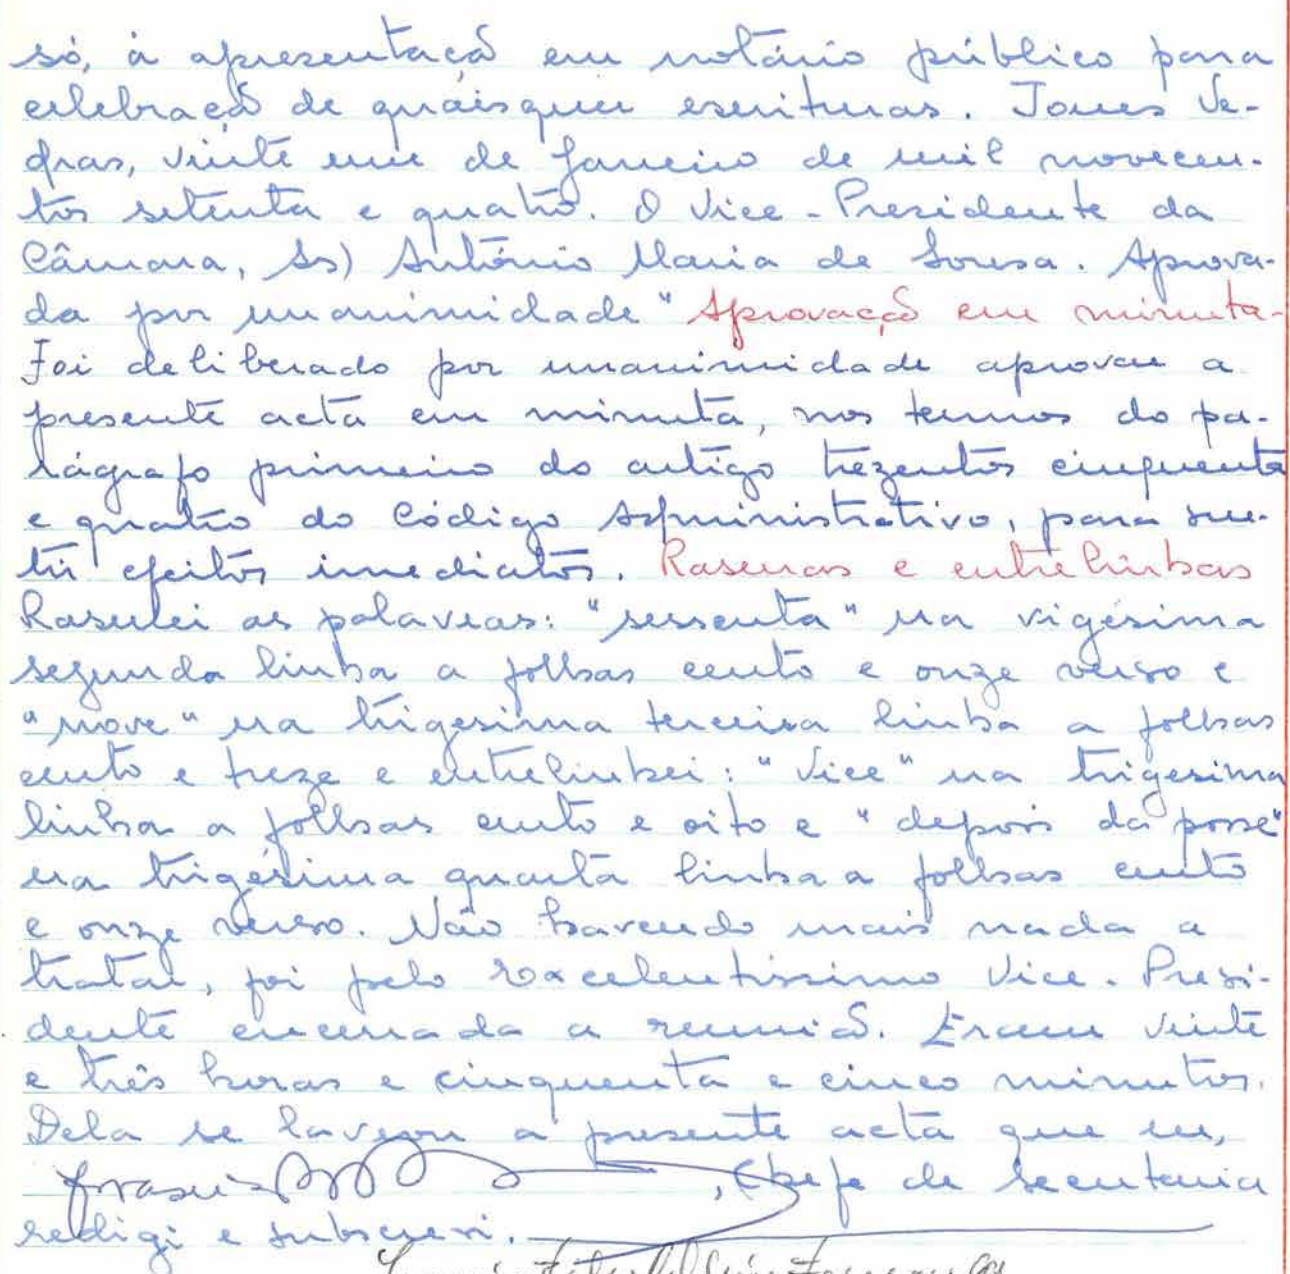 só, à apresentação em notário público para
celebração de quaisquer escrituras. Torres Ve-
dras, vinte um de Janeiro de mil novecen-
tos setenta e quatro. O Vice-Presidente da
Câmara, As) António Maria de Sousa. Aprova-
da por unanimidade" Aprovação em minuta-
Foi deliberado por unanimidade aprovar a
presente acta em minuta, nos termos do pa-
rágrafo primeiro do artigo trezentos cinquenta
e quatro do Código Administrativo, para sur-
tir efeitos imediatos. Rasuras e entrelinhas
Rasurei as palavras: "sessenta" na vigésima
segunda linha a folhas cento e onze verso e
"nove" na trigesima terceira linha a folhas
cento e treze e entrelinhei: "Vice" na trigesima
linha a folhas cento e oito e "depois da posse"
na trigésima quarta linha a folhas cento
e onze verso. Não havendo mais nada a
tratar, foi pelo Excelentissimo Vice-Presi-
dente encerrada a reunião. Eram vinte
e três horas e cinquenta e cinco minutos.
Dela se lavrou a presente acta que eu,
, Chefe de Secretaria
redigi e subscrevi.